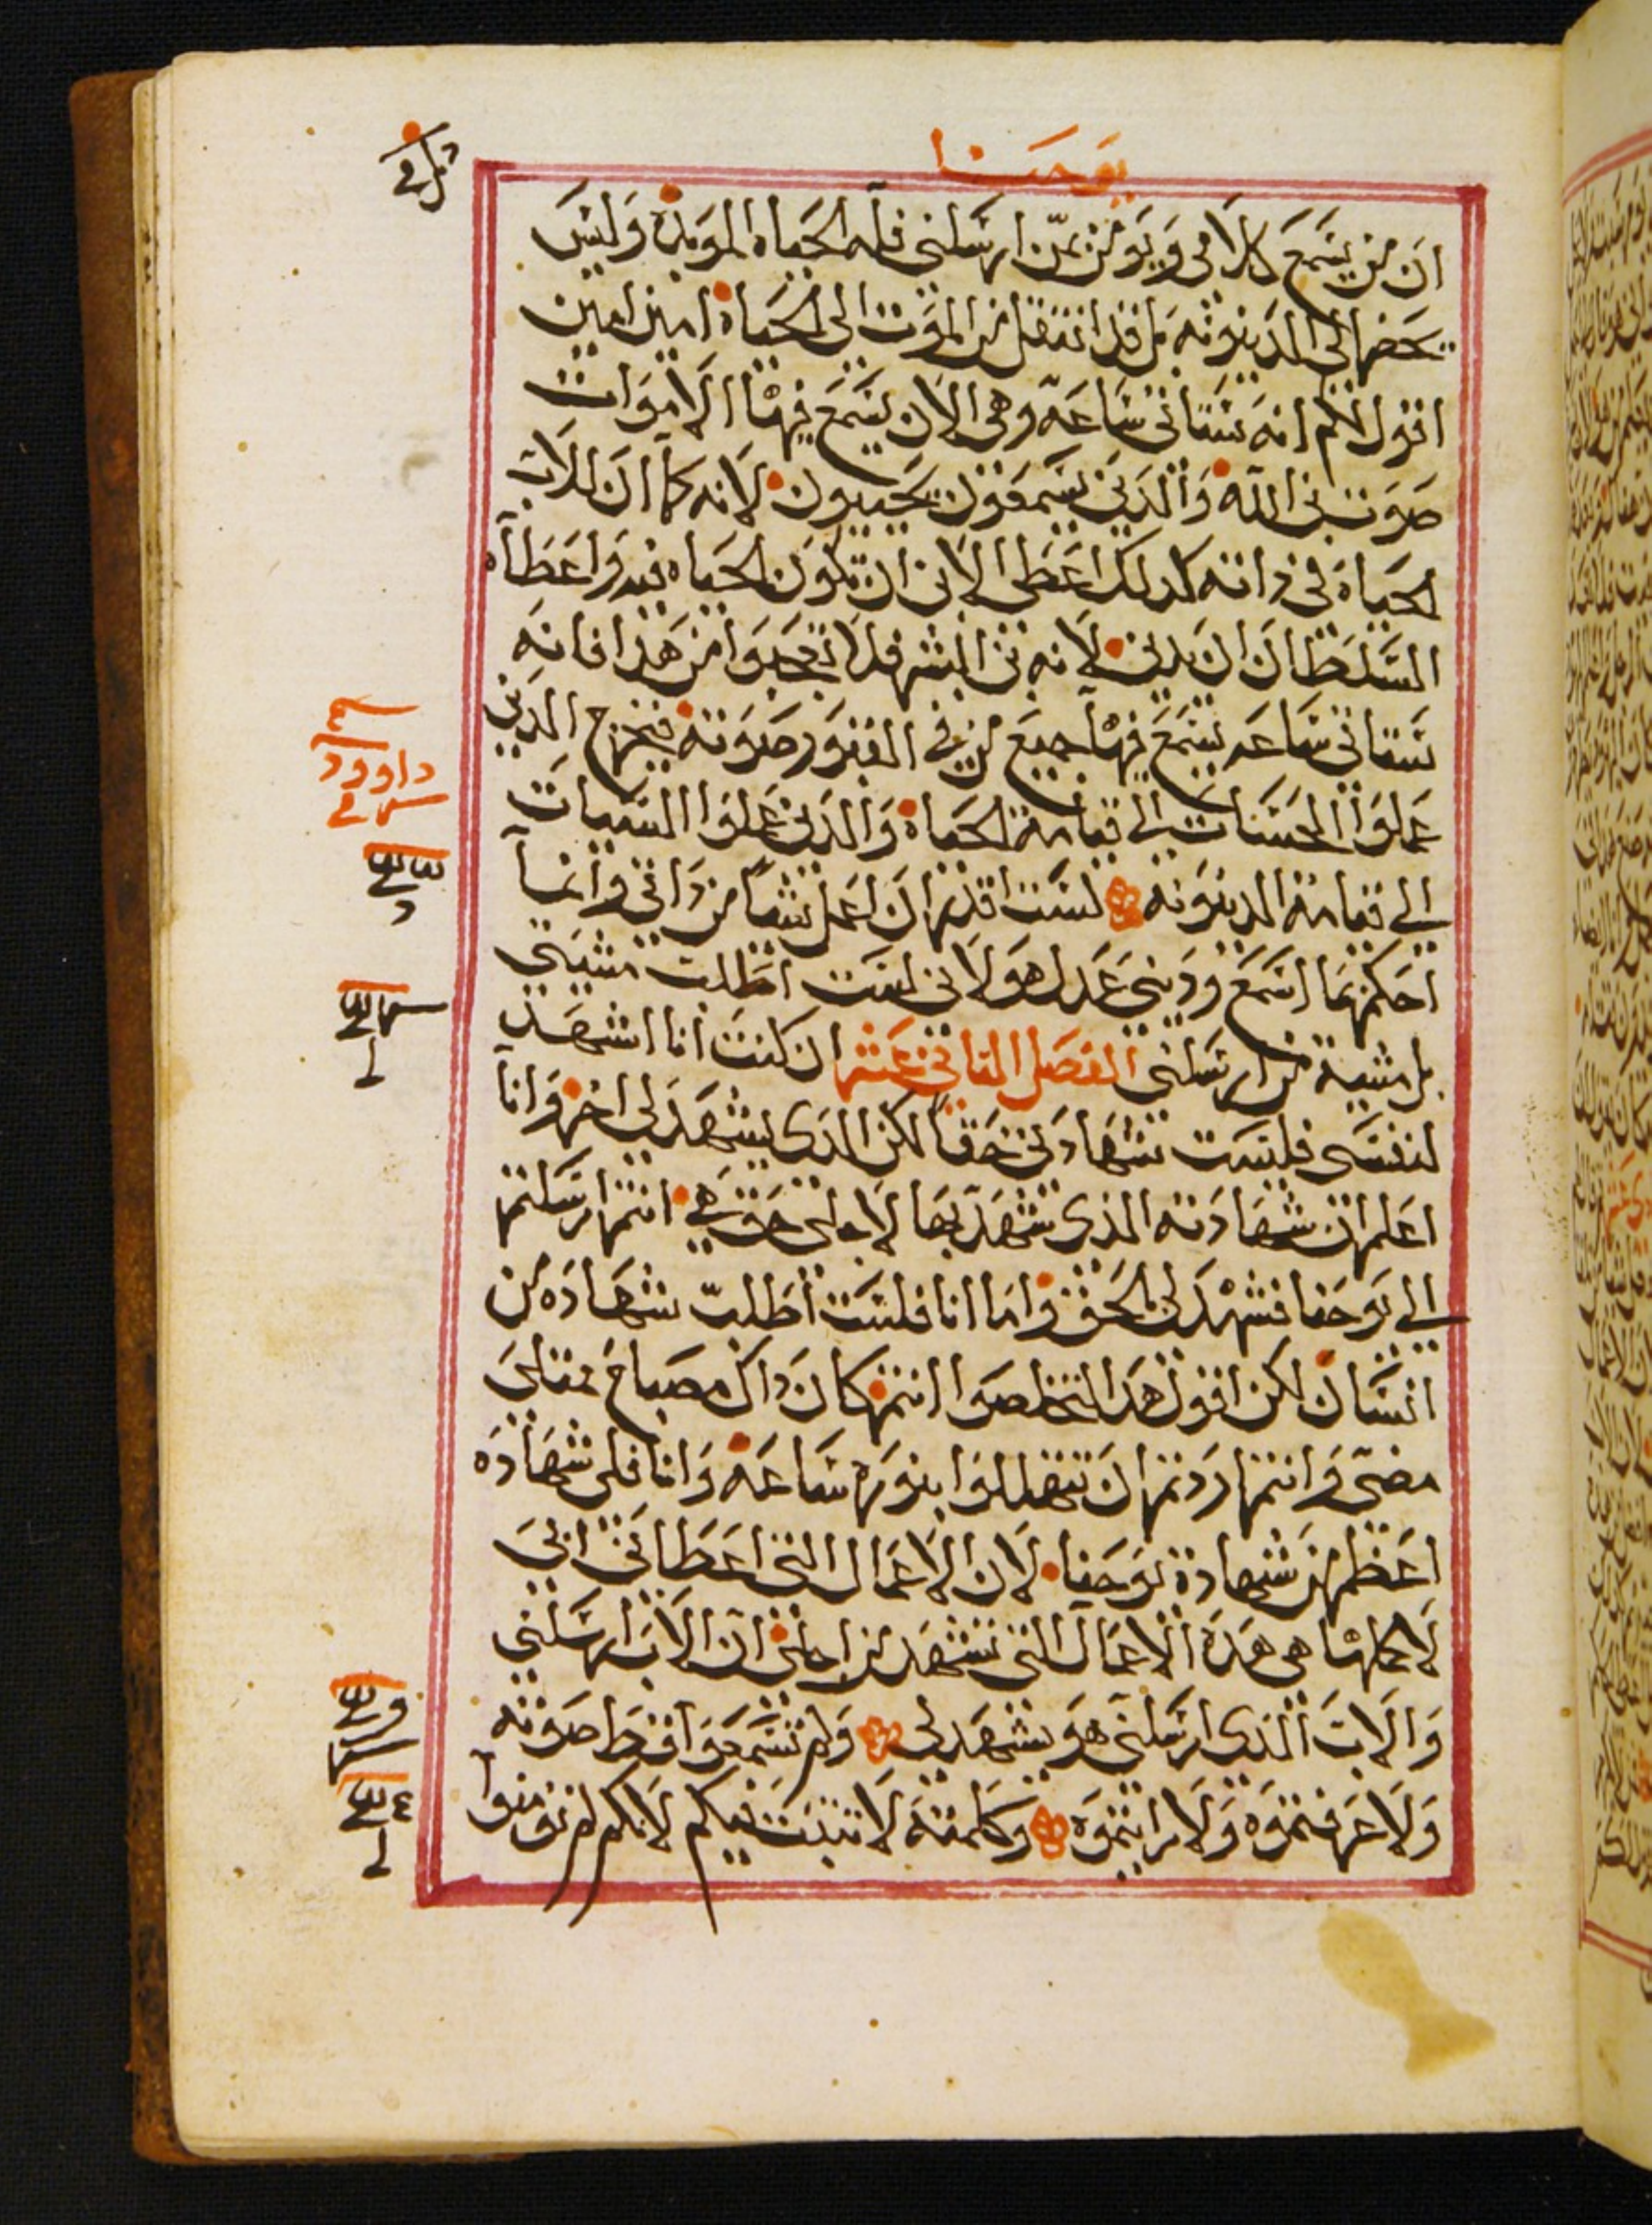 يوحنا
ان من يسمع كلامى ويومن بمن ارسلنى فله الحياه الموبده وليس
يحضر الى الدينونه بل قد انتقل من الموت الى الحياه امين امين
اقول لكم انه ستاتى ساعه وهى الان يسمع فيها الاموات
صوت بن الله والدين يسمعون يحييون لانه كما ان للاب
الحياه فى داته كدلك اعطى الابن ان تكون الحياه فيه واعطاه
السلطان ان يدين لانه بن البشر فلا تعجبوا من هدا فانه
ستاتى ساعه يسمع فيها جميع من فى القبور صوته فيخرج الدين
عملوا الحسنات الى قيامة الحياه والدين عملوا السيات
الى قيامة الدينونه لست اقدر ان اعمل شيا من داتى وانما
احكم بما اسمع ودينى عدل هو لانى لست اطلب مشيتى
بل مشية من ارسلنى الفصل التانى عشر ان كنت انا اشهد
لنفسى فليست شهادتى حقا لكن الدى يشهد لى اخر وانا
اعلم ان شهادته الذى شهد بها لاجلى حق هى انتم ارسلتم
الى يوحنا فشهد لى الحق واما انا فلست اطلب شهاده من
انسان لكن اقول هدا لتخلصوا انتم كان داك مصباح متقد
مضى وانتم اردتم ان تتهللوا بنوره ساعه وانا فلى شهاده
اعظم من شهادة يوحنا لان الاعمال التى اعطانى ابى
لاكملها هى هده الاعمال التى تشهد من اجلى ان الاب ارسلنى
والاب الذى ارسلنى هو يشهد لى ولم تسمعوا قط صوته
ولا عرفتموه ولا رايتموه وكلمته لا تتبت فيكم لانكم لم تومنوا
داوود